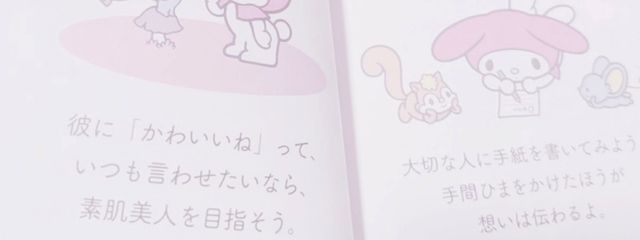 彼に「かわいいね」って、
いつも言わせたいなら、
素肌美人を目指そう。
大切な人に手紙を書いてみよう
手間ひまをかけたほうが
想いは伝わるよ。